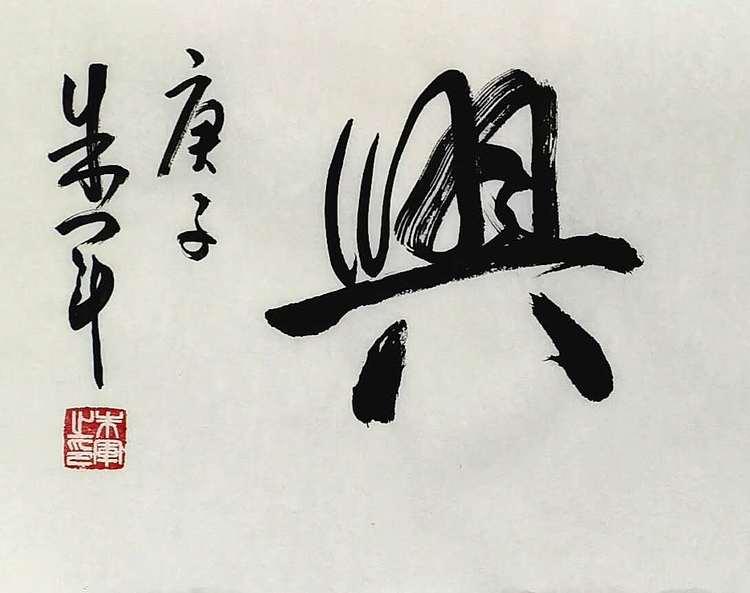 興
庚子
朱軍
朱軍
之印